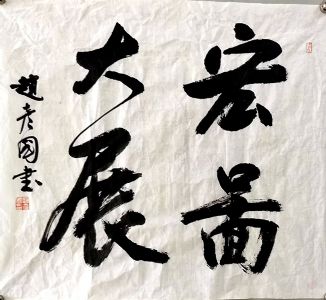 宏圖
大展
趙彦國書